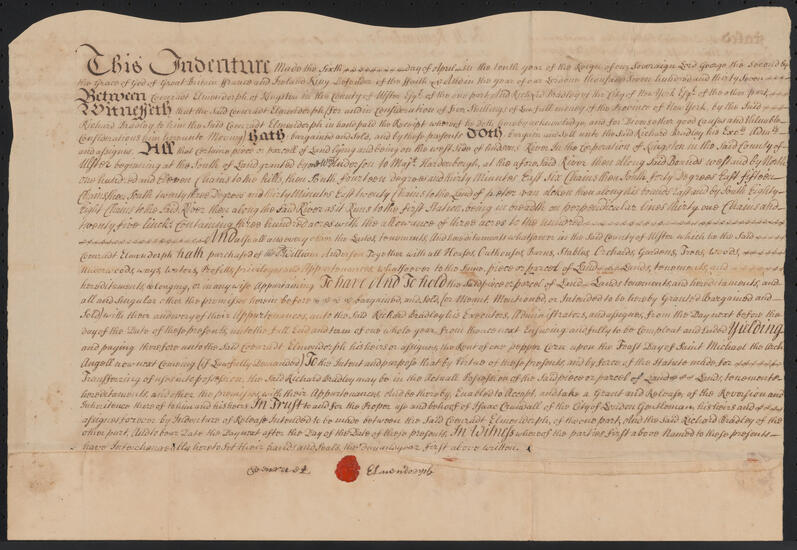 This Indenture Made the Sixth day of April in the tenth year of the Reign of our Sovereign Lord George the Second by
the Grace of God of Great Britain France and Ireland King Defender of the Faith &c And in the year of our Lord one thousand Seven hundred and thirty Seven
Between Conradt Elmendorph of Kingston in the County of Ulster Esqr. of the one part, And Richard Bradley of the City of New York Esqr. of the other part,
Witnesseth that the Said Conradt Elmendorph for and in Consideration of five Shillings of Lawfull money of the Province of New York, by the Said
Richard Bradley to him the Said Conradt Elmendorph in hand paid the Receipt whereof he doth hereby acknowledge, and for Divers other good Causes and Valuable
Considerations him hereunto Moveing Hath bargained and Sold, and by these presents Doth bargain and Sell unto the Said Richard Bradley his Exrs. Admrs.
and assigns. All that certain piece or parcell of Land lying and being on the west Side of Rondout River In the Corporation of Kingston in the Said County of
Ulster begining at the South of Land granted by Anderson to Majr. Hardenbergh, at the afore Said River then along Said bounds west and by North
one hundred and Eleven Chains to the hills, then South fourteen degrees and thirty Minutes East Six Chains then South, forty Degrees East fifteen
Chains then South twenty three Degrees and thirty Minutes East twenty Chains to the Land of Peter van Aken then along his bounds East and by South Eighty
Eight Chains to the Said River then along the Said River as it Runs to the first Station, being in breadth on perpendicular lines thirty one Chains and
twenty five Lincks Containing three hundred acres with the allowance of three acres to the hundred
And also all and every other the Lands, tenements, and hereditaments whatsoever in the Said County of Ulster which he the Said
Conradt Elmendorph hath purchased of William Anderson Together with all Houses, Outhouses Barns, Stables, Orchards, Gardens, Trees, woods,
Underwoods, ways, waters, Profitts, priviledges and Appurtenances, whatsoever to the Same, piece or parcel of Land Lands, tenements, and
hereditaments belonging, or in any wise Appertaining To have And To hold the Said piece or parcel of Land Lands tenements, and hereditaments, and
all and Singular other the premisses herein before bargained, and Sold, (or Meant, Mentioned, or Intended to be hereby Granted Bargained and
Sold) with their and every of their Appurtenances, unto the Said Richard Bradley his Executors, Administrators, and assigns, from the Day next before the
day of the Date of these presents, unto the full End and term of one whole year from thence next Ensuing and fully to be Compleat and Ended Yielding
and paying therefore unto the Said Conradt Elmendorph his heirs or assigns, the Rent of one pepper Corn upon the Feast Day of Saint Michael the Arch
Angell now next Comeing (if Lawfully Demanded) To the Intent and purpose that by Virtue of these presents, and by force of the Statute made for
Transferring of uses into possession, the Said Richard Bradley may be in the Actuall Possession of the Said piece or parcel of Land Lands, tenements
hereditaments, and other the premisses with their Appurtenances And be thereby Enabled to Accept, and take a Grant and Release, of the Reversion and
Inheritance thereof to him and his heirs In Trust to and for the Proper use and behoof of Isaac of the City of London Gentleman, his heirs and
assigns forever by Indenture of Release Intended to be made between the Said Conradt Elmendorph, of the one part, And the Said Richard Bradley of the
other part, And to bear Date the Day next after the Day of the Date of these presents. In Witness whereof the parties first above Named to these presents
have Interchangeably hereto Set their hands and Seals, the Day and year first above written.
Coenraet Elmendorph